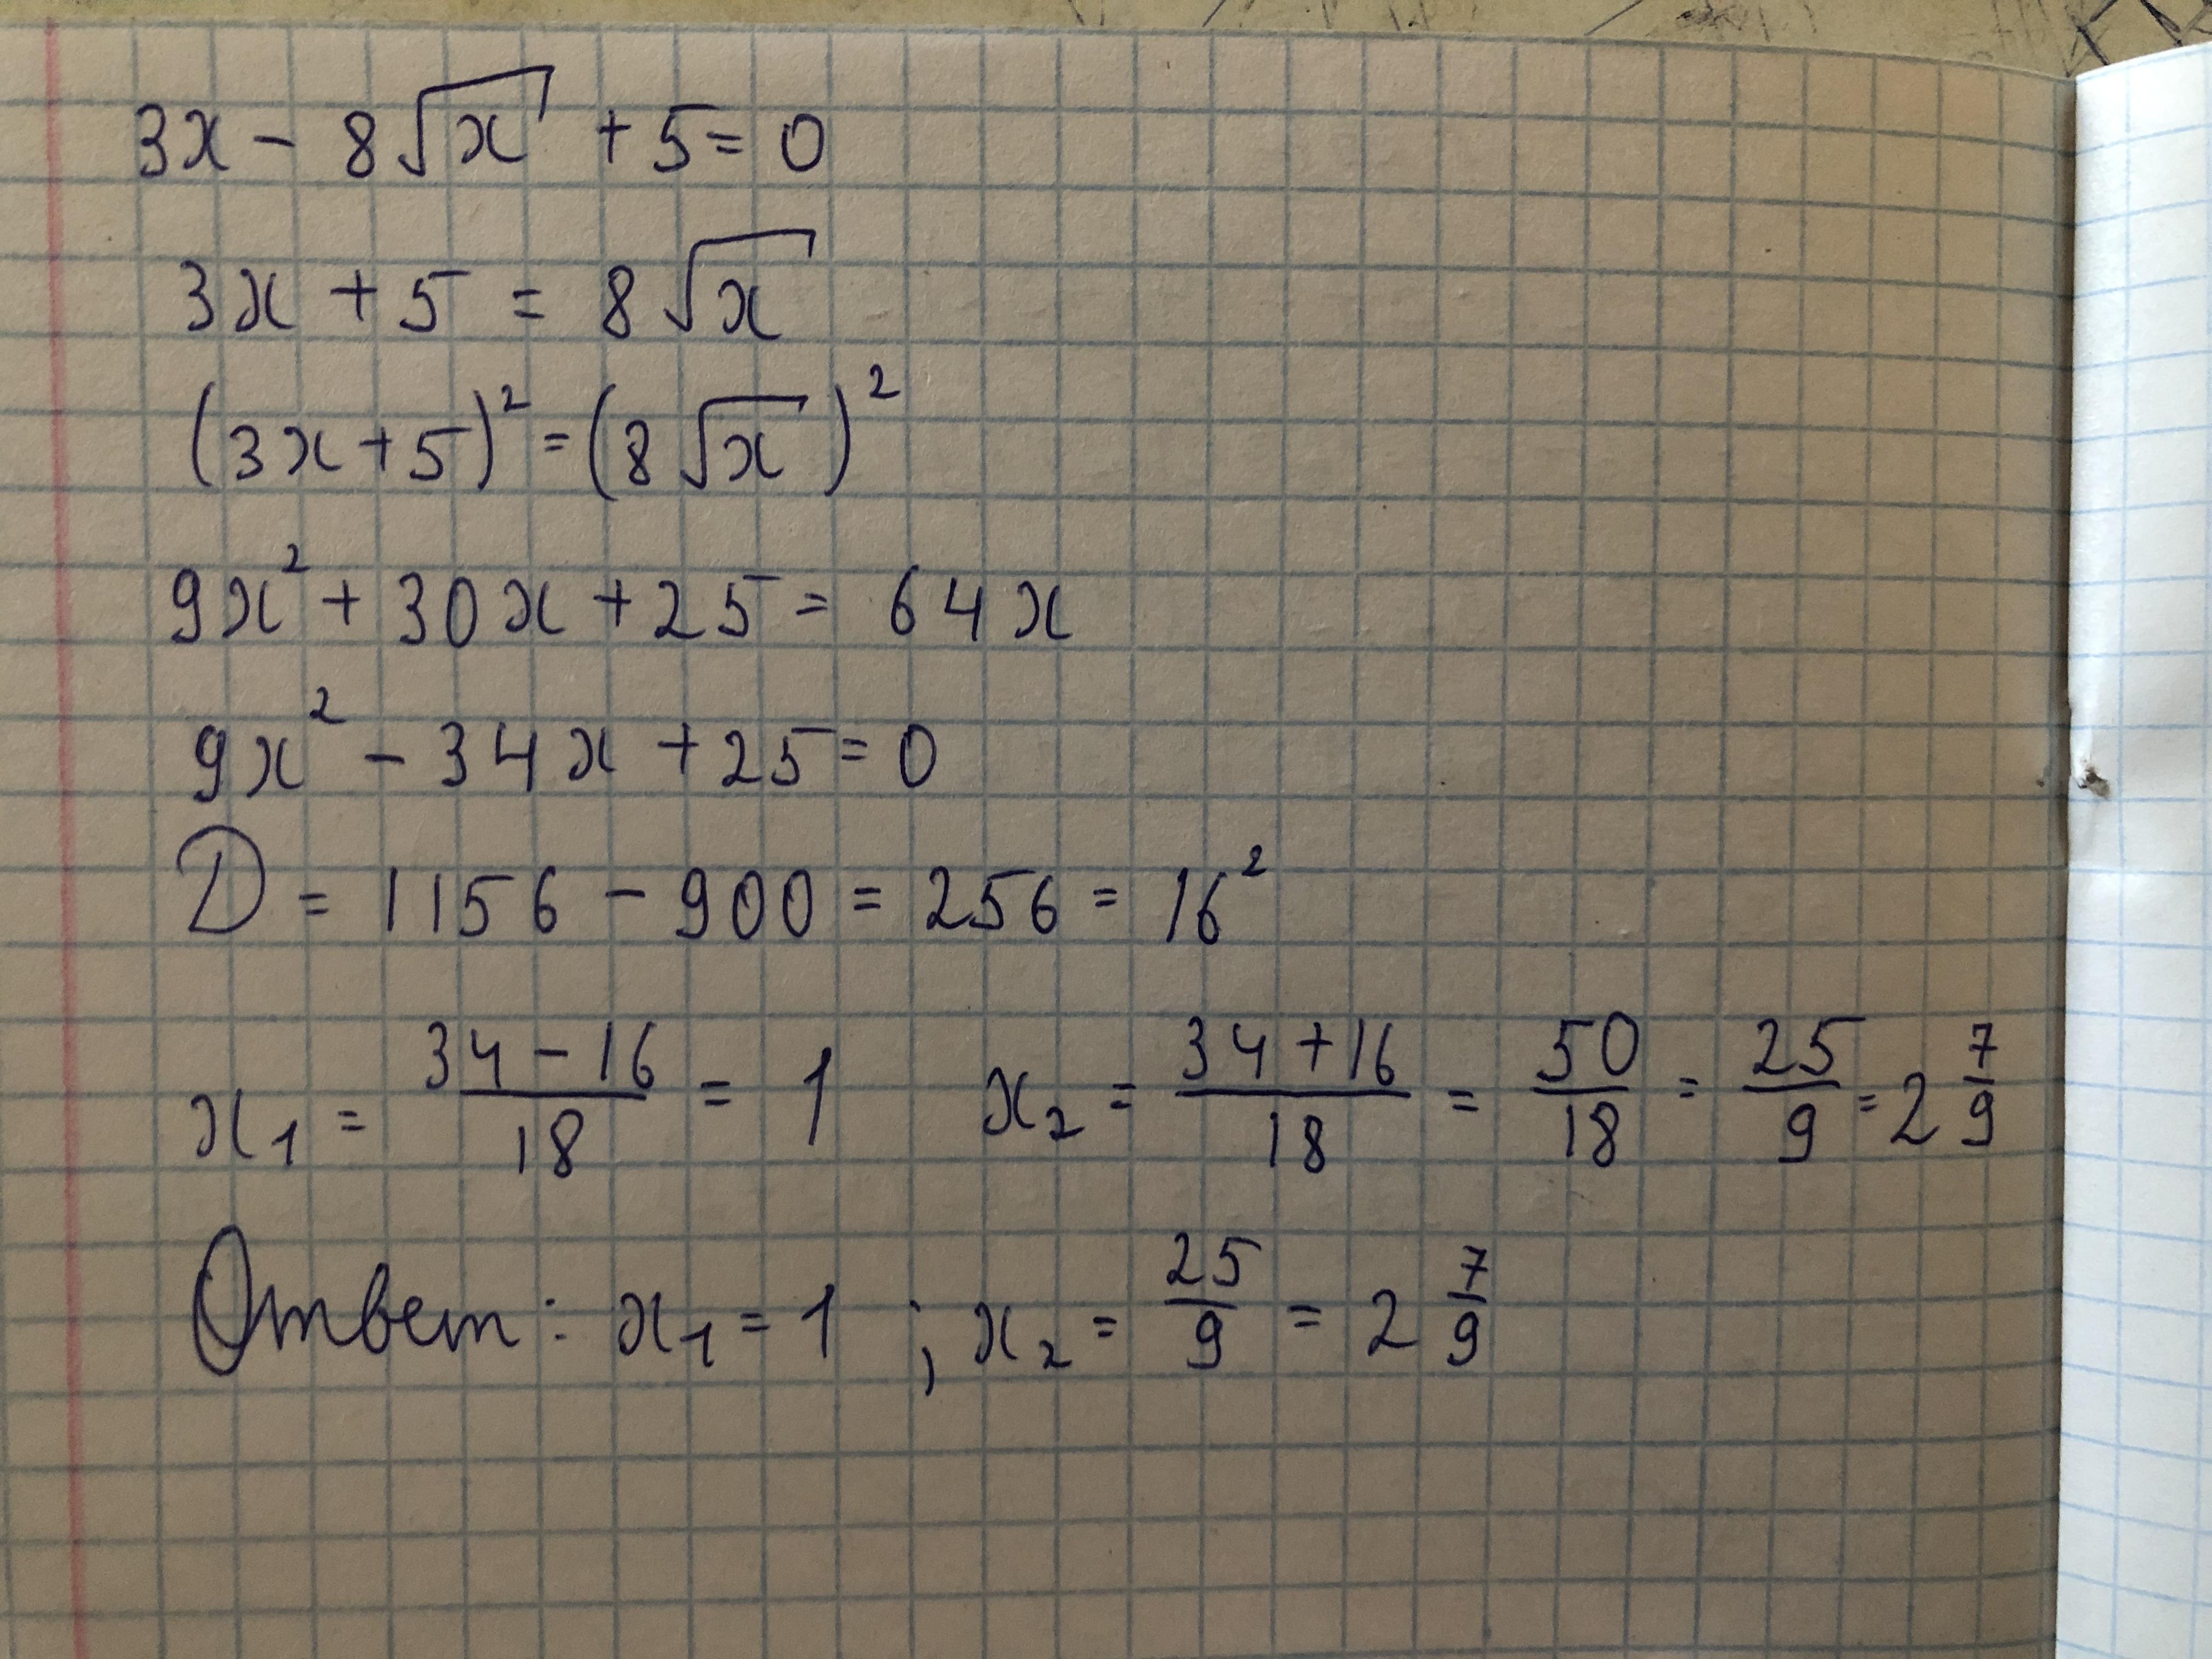 3x - 8√x + 5 = 0
3x + 5 = 8√x
(3x + 5)² = (8√x)²
9x² + 30x + 25 = 64x
9x² - 34x + 25 = 0
D = 1156 - 900 = 256 = 16²
x₁ = (34 - 16)/18 = 1 x₂ = (34 + 16)/18 = 50/18 = 25/9 = 2 7/9
Ответ: x₁ = 1 ; x₂ = 25/9 = 2 7/9